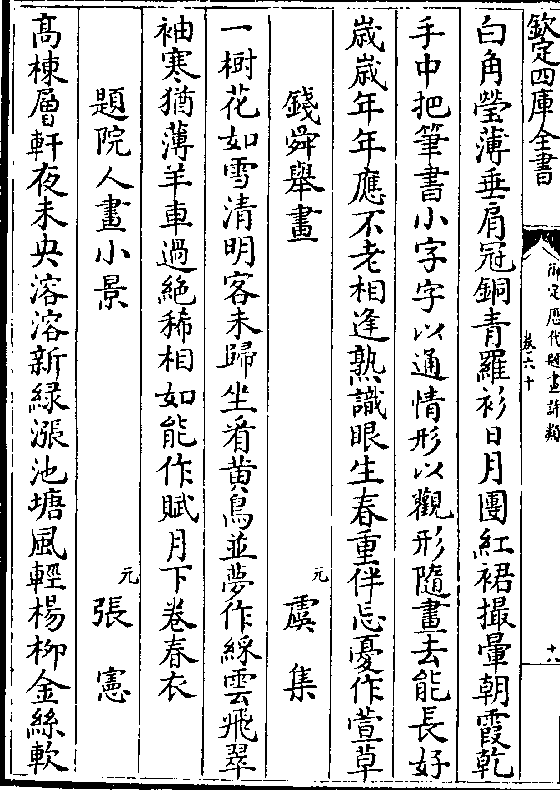 欽定四庫全書
御定歷代題畫詩類
卷六十
十八
白角瑩薄垂肩冠銅青羅衫日月團紅裙撮暈朝霞乾
手中把筆書小字字以通情形以觀形隨畫去能長好
歲歲年年應不老相逢熟識眼生春重伴忘憂作萱草
錢舜舉畫
元虞集
一樹花如雪清明客未歸坐看黄鳥並夢作綵雲飛翠
袖寒猶薄羊車過絶稀相如能作賦月下卷春衣
題院人畫小景
元張憲
高棟層軒夜未央溶溶新緑漲池塘風輕楊柳金絲軟